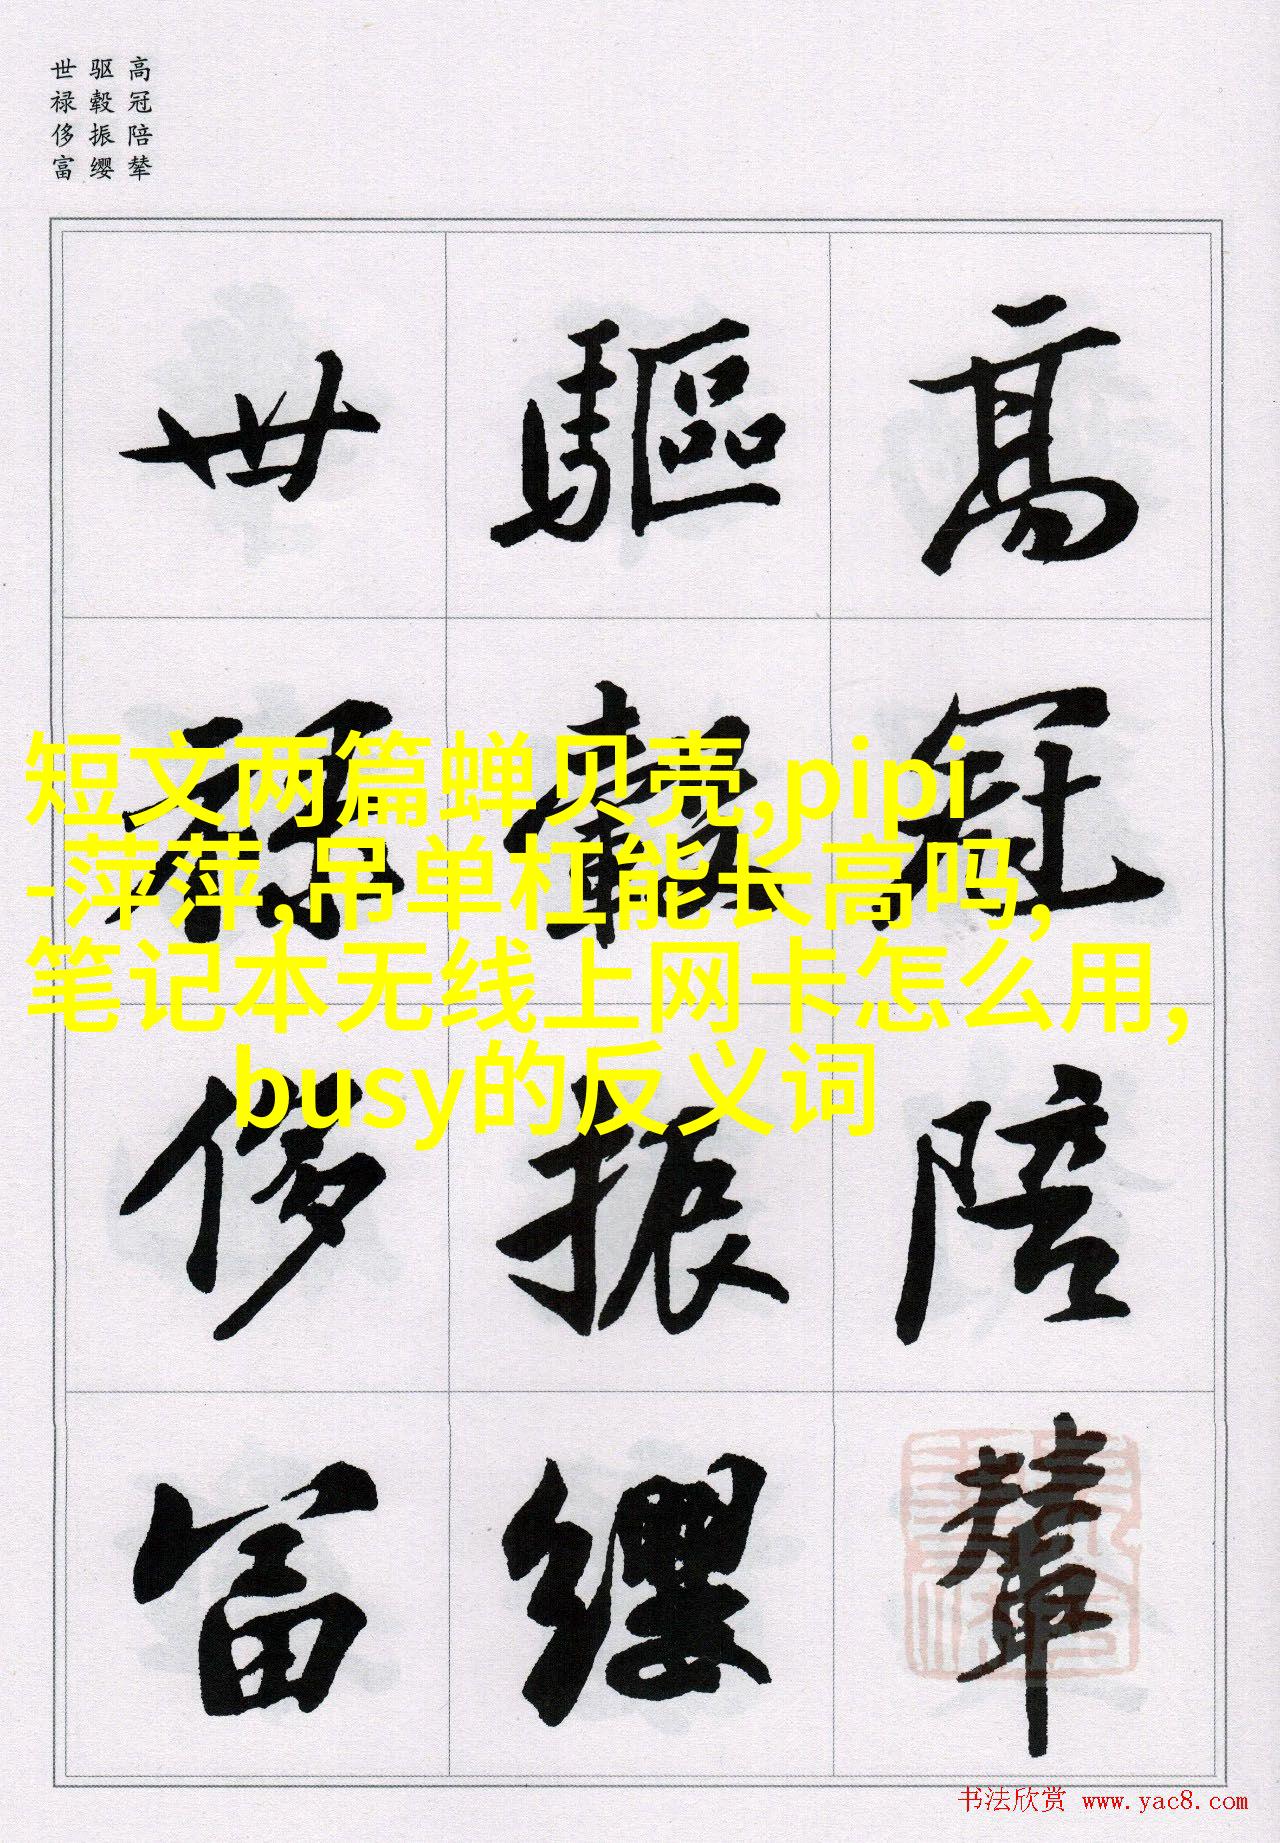 高冠陪辇
驱毂振缨
世禄侈富
高冠陪輦
驅轂振纓
世禄侈富
短文两篇蝉贝壳,pipi
-萍萍,吊单杠能长高吗,
笔记本无线上网卡怎么用,
busy的反义词
书法欣赏 www.yac8.com